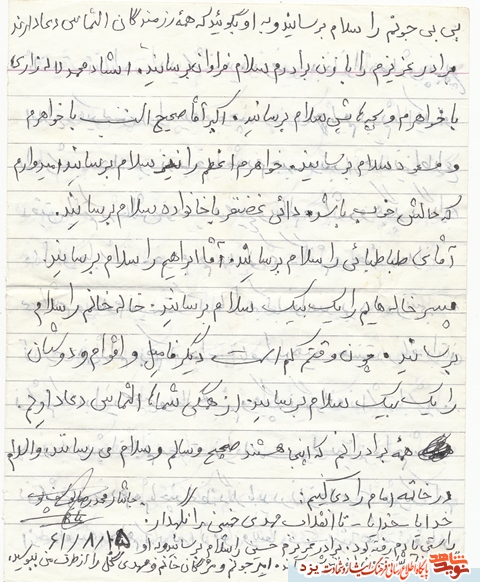 بی بی جونم را سلام برسانند و به او بگوئید که همهٔ رزمندگان التماس دعا دارند
برادر عزیزم را با زن برادرم سلام فراوان برسانید. استاد محمد
با خواهرم و بچه هایش سلام برسانید. اکبر آقا صحیح النسب با خواهرم
و سلام برسانید. خواهرم اعظم را نیز سلام برسانید امیدوارم
که حالش خوب باشد. دائی غضنفر با خانواده سلام برسانید.
آقای طباطبائی را سلام برسانید. آقا ابراهیم را سلام برسانید.
پسر خاله هایم را یک یک سلام برسانید. خاله خانم را سلام
برسانید. چون وقتم کم است دیگر فامیل و اقوام و دوستان
را یک یک سلام برسانید. از همگی شماها التماس دعا دارم.
همهٔ برادرانم که اینجا هستند صحیح و سالم و سلام می رسانند. والسلام
در خاتمه امام را دعا کنیم:
خدایا خدایا تا انقلاب مهدی خمینی را نگهدار.
راستی یادم رفته بود. برادر عزیزم حسن را سلام برسانید و به او
۶۱/۸/۱۵
امیر جونم و خانم و مهدی را از طرف من ببوسید.
نوید شاهد
پایگاه اطلاع رسانی فرهنگ ایثار و شهادت یزد